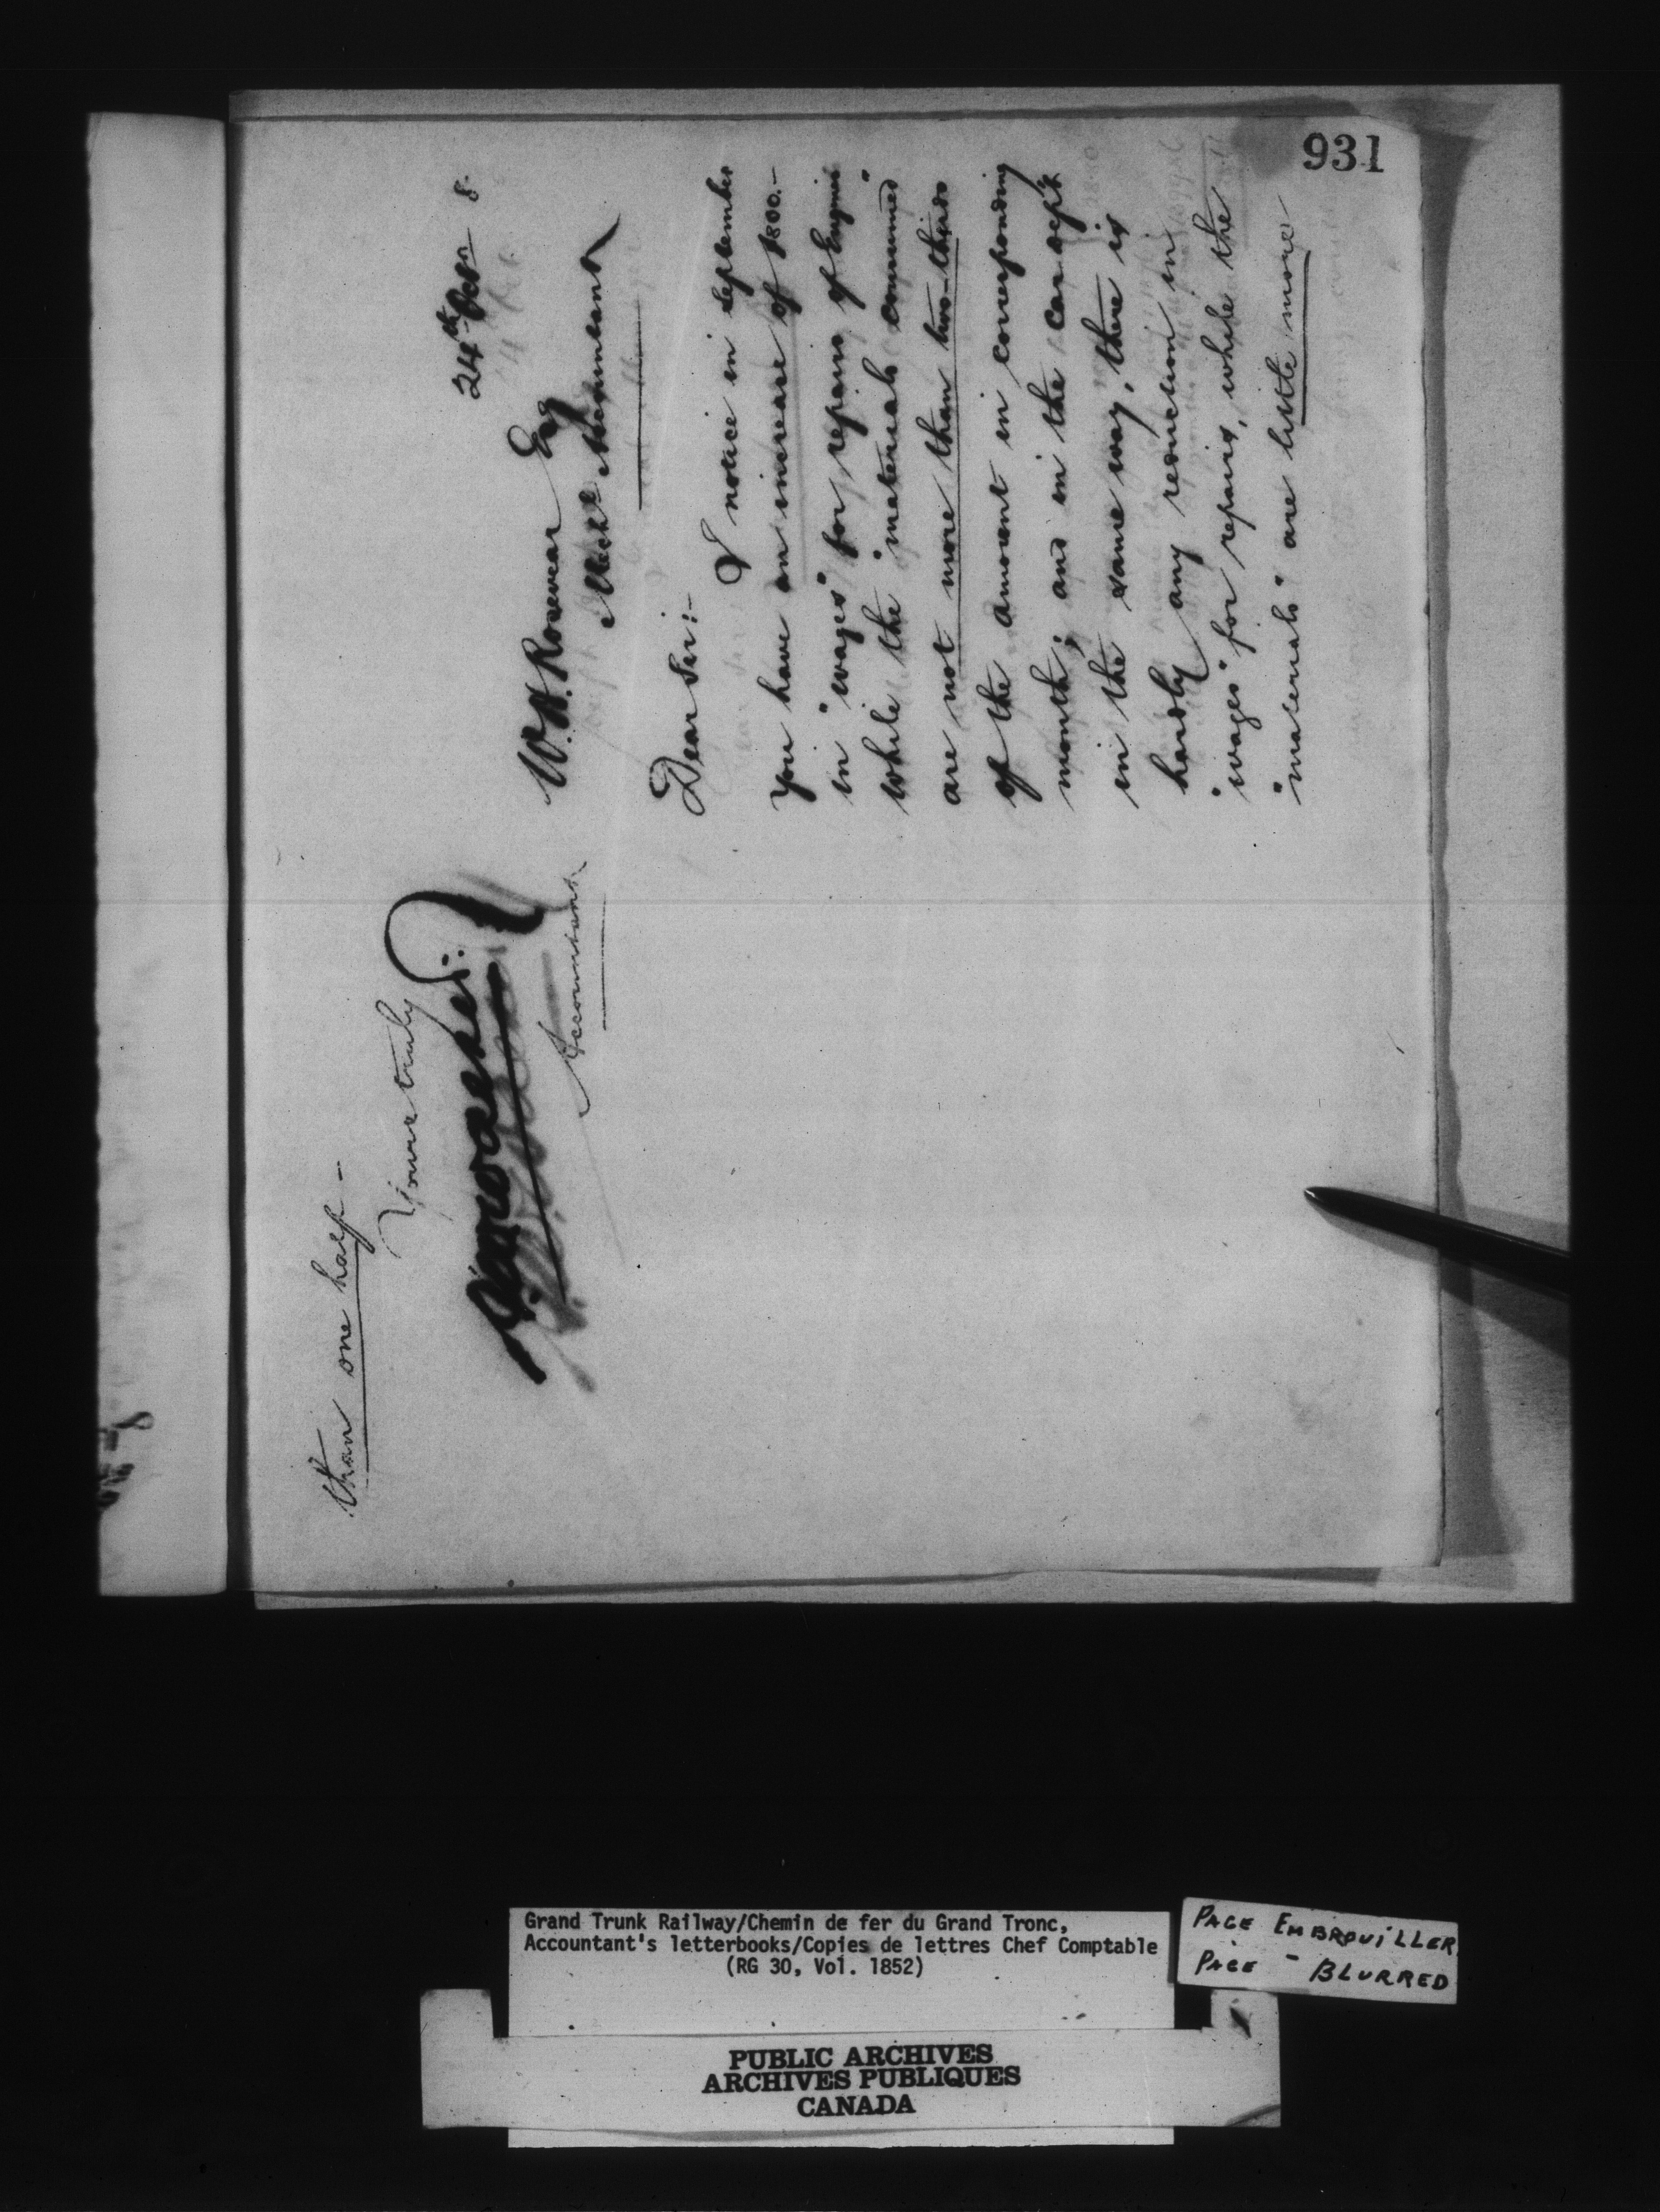 931
24th Oct 8.
W. H. Rosevear Esq
Mechl Accountant
Dear Sir:-
I notice in September
you have an increase of $1800.-
in "wages" for repairs of Engines
while the "materials consumed"
are not more than two-thirds
of the amount in corresponding
month; and in the car dep't
in the same way, there is
hardly any reduction in
"wages" for repairs, while the
"materials" are little more
than one half -
Yours truly
Accountant
Grand Trunk Railway/Chemin de fer du Grand Tronc,
Accountant's letterbooks/Copies de lettres Chef Comptable
(RG 30, Vol. 1852)
PAGE EMBROUILLER
PAGE - BLURRED
PUBLIC ARCHIVES
ARCHIVES PUBLIQUES
CANADA